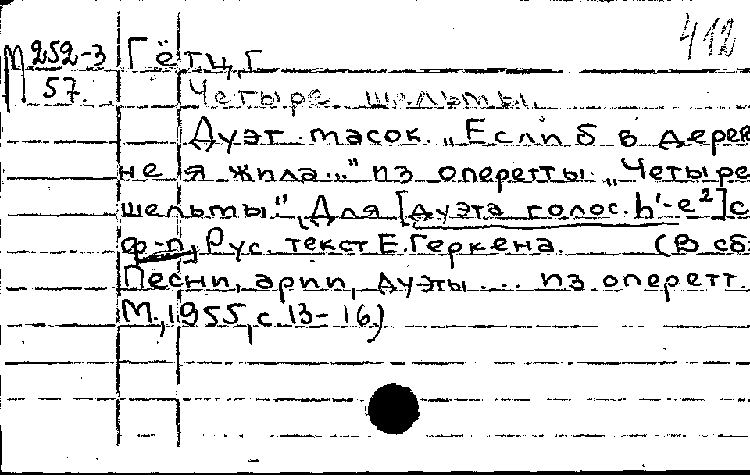 412
М 252-3 Гётц, Г
57. Четыре шельмы.
Дуэт масок. „Если б в дерев
не я жила..." из оперетты „Четыре
шельмы". Для [дуэта голос. h'-e²] с
ф-п, Рус. текст Е. Геркена. (В сб:
Песни, арии, дуэты... из оперетт.
М., 1955, с. 13-16.)